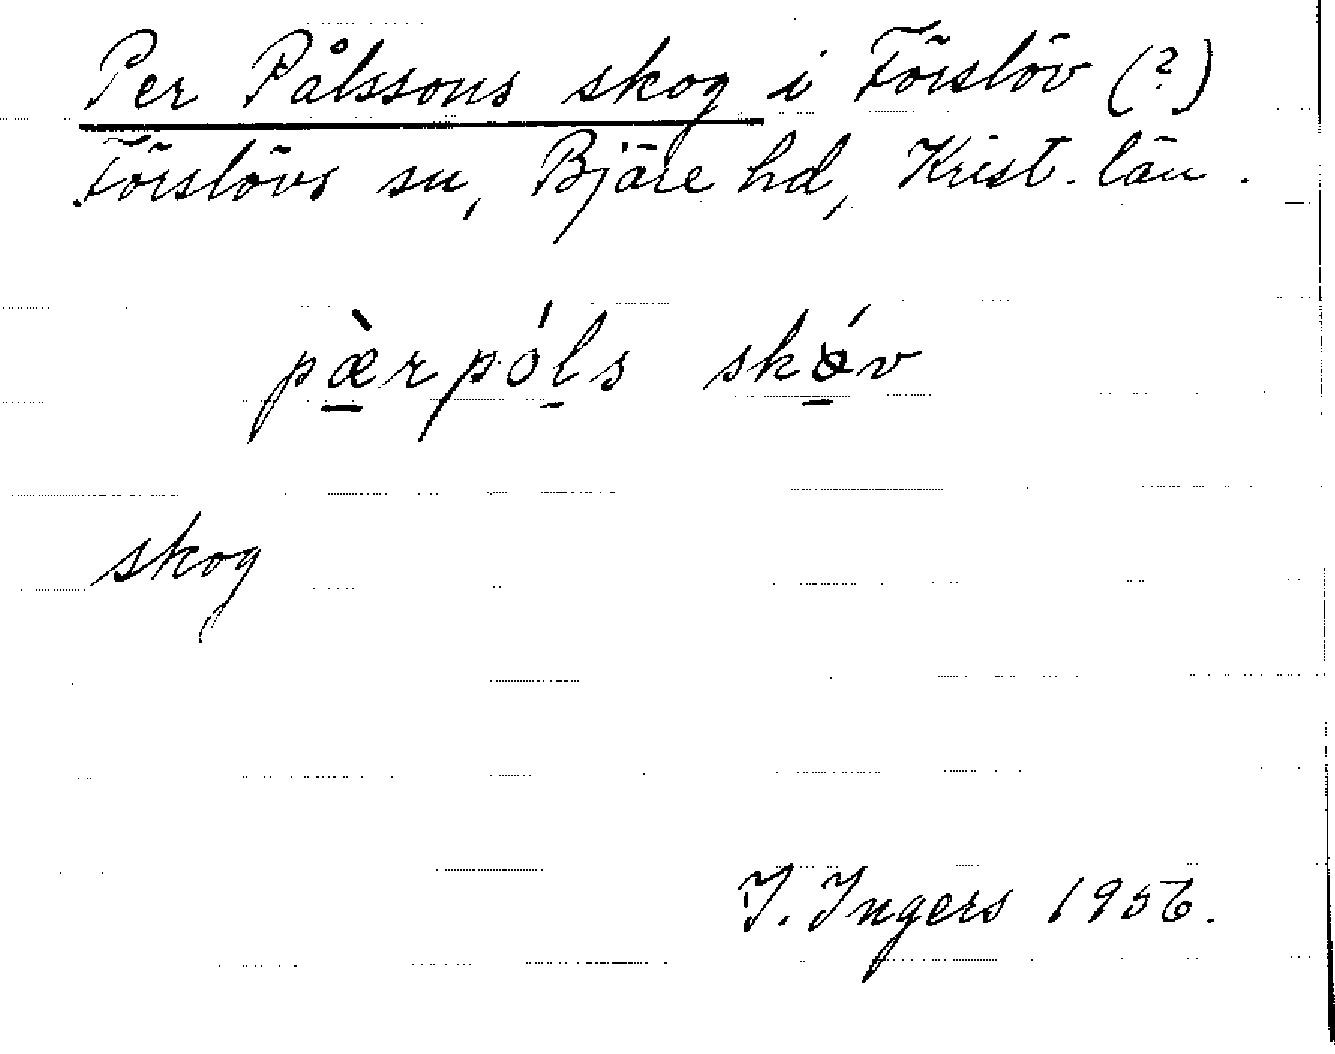 Per Pålssons skog i Förslöv (?)
Förslövs sn, Bjäre hd, Krist. län.
pæ̠̀rpól̠s skǿ̠v
skog
I. Ingers 1956.